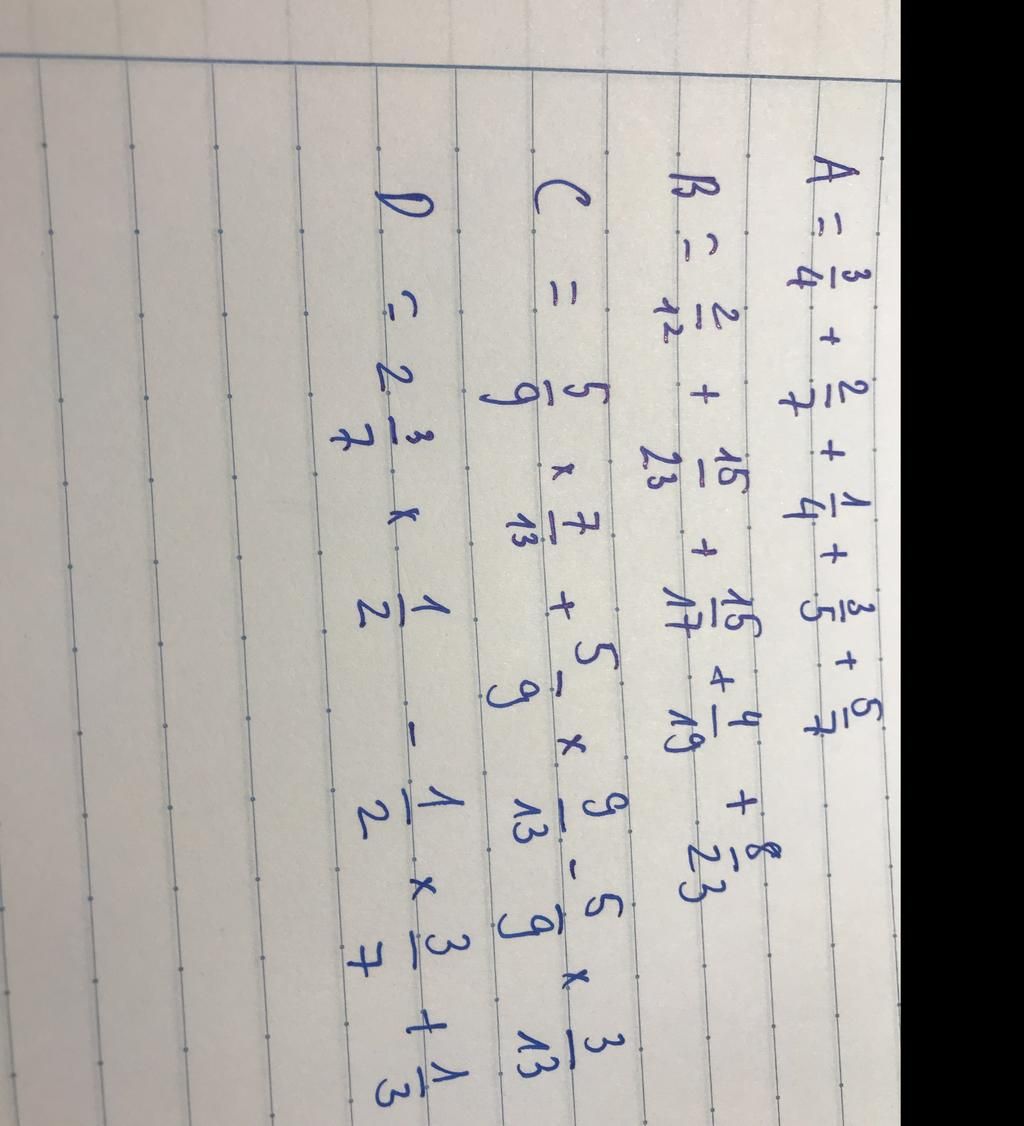 A = 3/4 + 2/7 + 1/4 + 3/5 + 5/7
B = 2/12 + 15/23 + 15/17 + 4/19 + 8/23
C = 5/9 x 7/13 + 5/9 x 9/13 - 5/9 x 3/13
D = 2 3/7 x 1/2 - 1/2 x 3/7 + 1/3